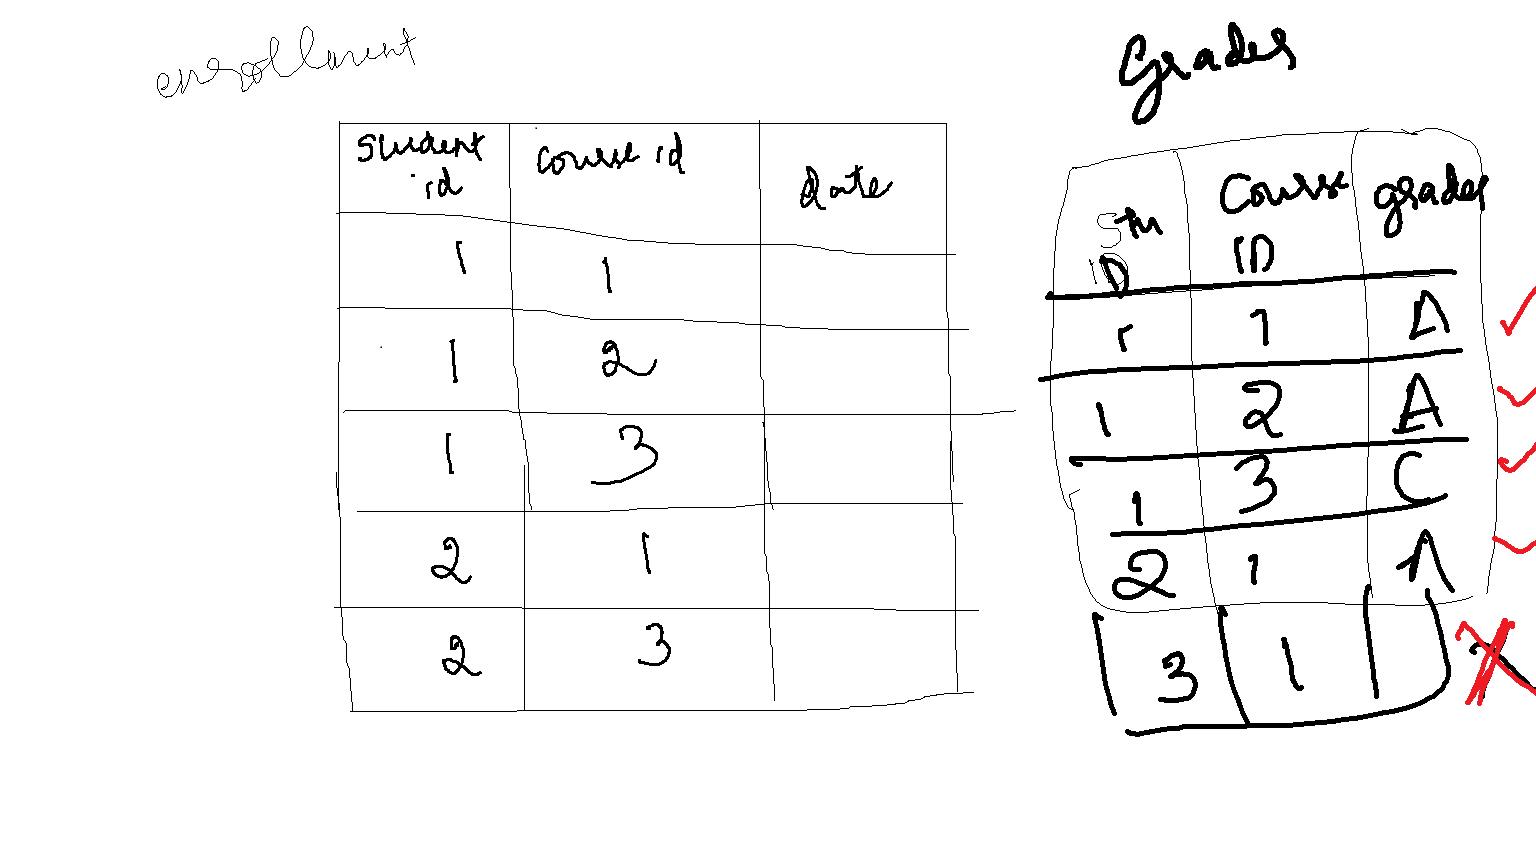 enrollment
Student id | course id | date
1 | 1
1 | 2
1 | 3
2 | 1
2 | 3
Grades
Stu ID | Course ID | grades
1 | 1 | A
1 | 2 | A
1 | 3 | C
2 | 1 | A
3 | 1